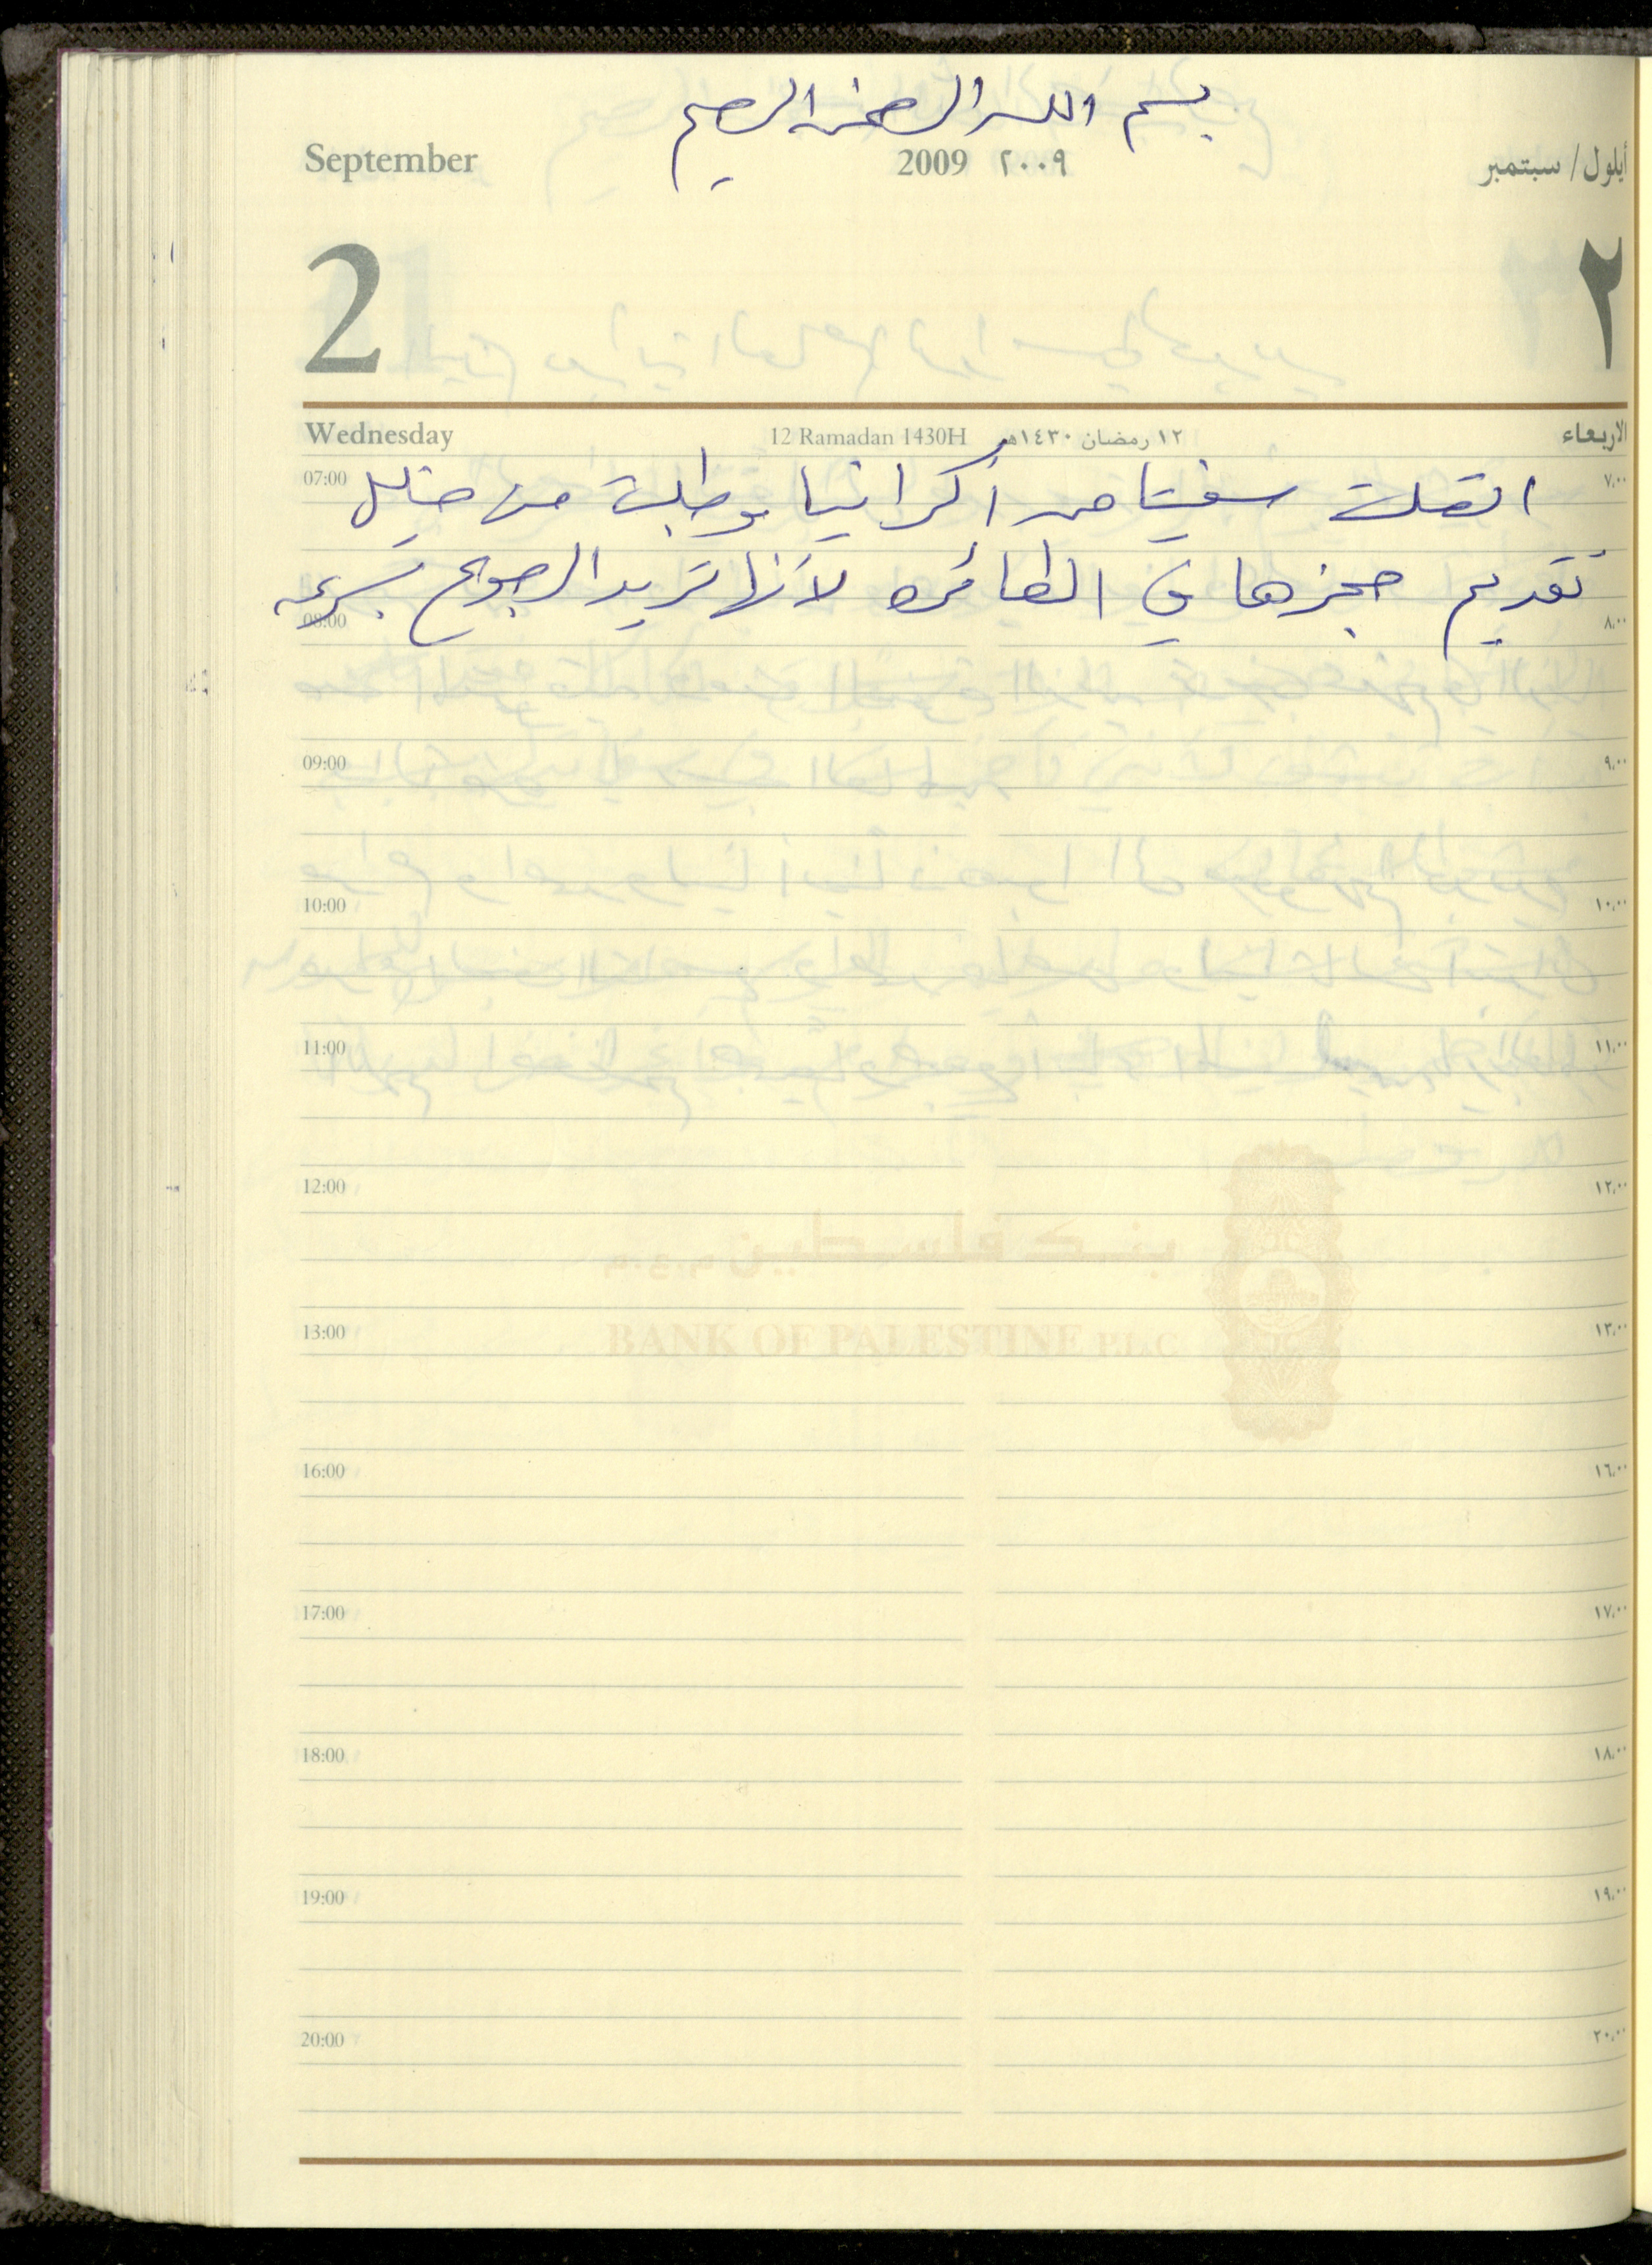 بسم الله الرحمن الرحيم
September 2009 ٢٠٠٩ أيلول / سبتمبر
2 ٢
Wednesday 12 Ramadan 1430H ١٢ رمضان ١٤٣٠هـ الاربعاء
07:00 ٧,٠٠
اتصلت من أكرانيا وطلبت من خليل
تقديم حجزها في الطائره لأنها تريد الرجوع بسرعه
08:00 ٨,٠٠
09:00 ٩,٠٠
10:00 ١٠,٠٠
11:00 ١١,٠٠
12:00 ١٢,٠٠
بنك فلسطين م.ع.م
13:00 ١٣,٠٠
BANK OF PALESTINE P.L.C
16:00 ١٦,٠٠
17:00 ١٧,٠٠
18:00 ١٨,٠٠
19:00 ١٩,٠٠
20:00 ٢٠,٠٠